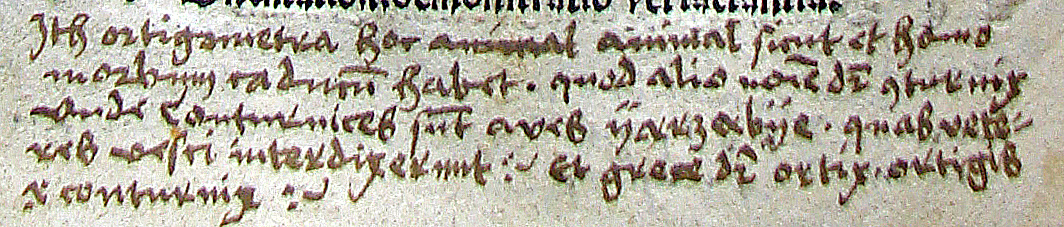 Ith ortigometra hoc animal animal sicut et homo
morbum caducū habet. quod alio noīe dr̄ ꝯturnix
vnde Conturnices sūt aves ÿarzabÿe. quas vete-
res vesci interdixerunt :~ Et grece dr̄ ortix. ortigis
r conturnix :~